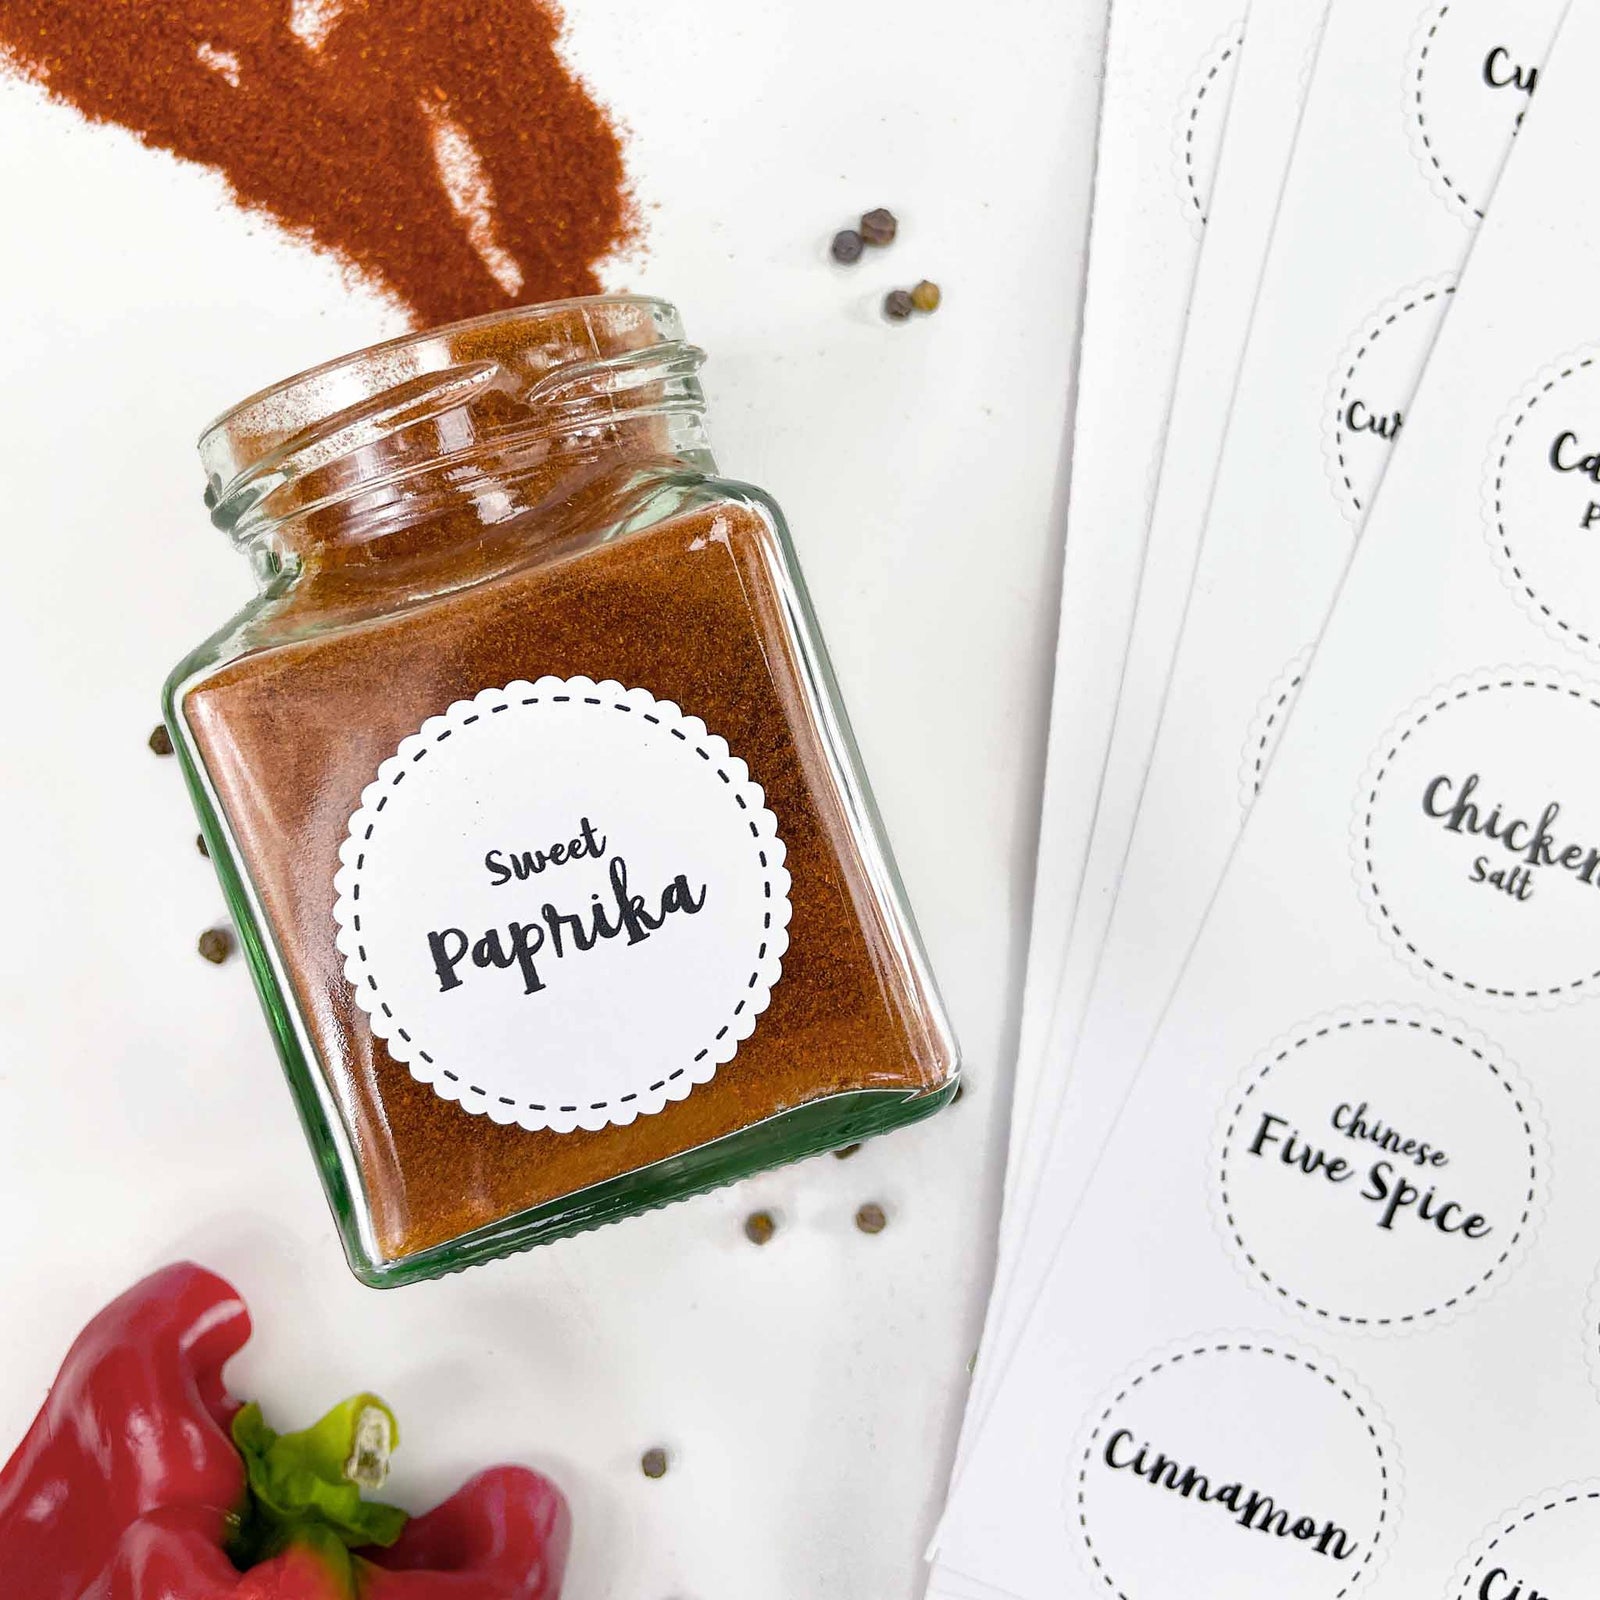 Sweet
Paprika
Chicken
Salt
Chinese
Five Spice
Cinnamon